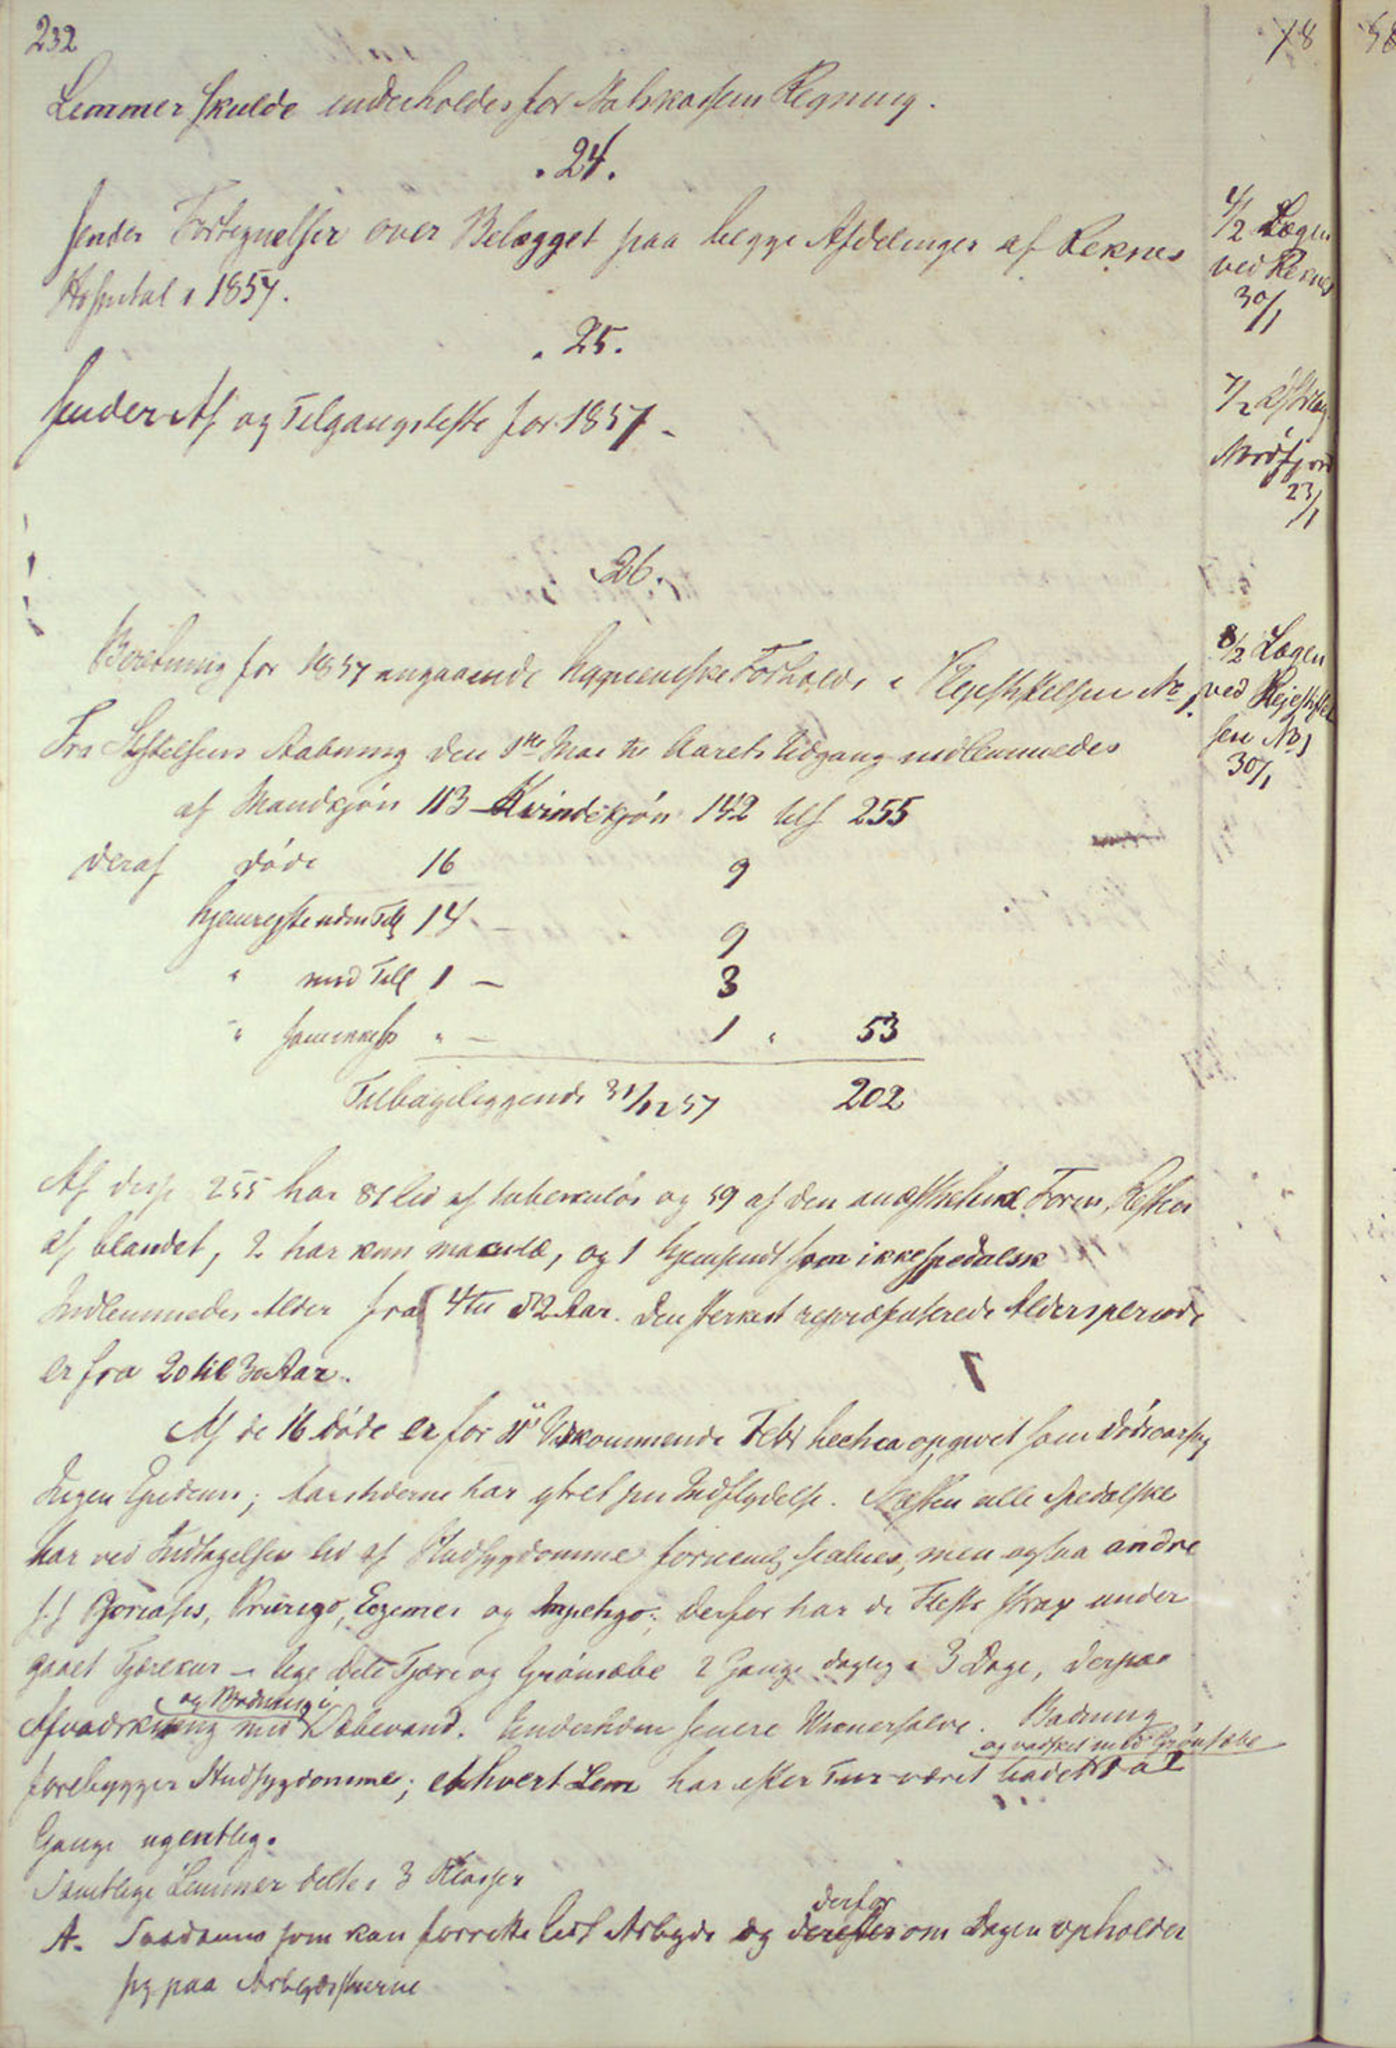 232
Lemmer skulde underholdes for Statskassens Regning.
. 24 .
sender Fortegnelser over Belægget paa begge Afdelinger af Reknes
Hospital i 1857.
4/2 Lægen
ved Reknes
30/1
. 25 .
sender Af og Tilgangsliste for 1857 -
7/2
Nordfjord
23/1
26.
Beretning for 1857 angaaende hygieniske Forholde i Plejestiftelsen No 1.
8/2 Lægen
ved Plejestiftel
sen No 1
30/1
Fra Stiftelsens Aabning den 1ste Mai til Aarets Udgang indlemmedes
af Mandkjøn 113 - Kvindekjøn 142 tils 255
deraf døde 16 9
hjemrejste uden Till 14 - 9
" med Till 1 - 3
" som ikke sp " - 1 " 53
Tilbageliggende 31/12 57 202
Af disse 255 har 81 lid af tuberkuløs og 59 af den anæsthetiske Form, Resten
af blandet, 2 har kun maculæ, og 1 hjemsendt som ikke spedalsk
Indlemmedes Alder fra 4 til 82 Aar. Den sterkest repræsenterede Aldersperiode
er fra 20 til 30 Aar.
Af de 16 døde er for 11 Vedkommende Febr hectica opgivet som Dødsaarsag
Ingen Epidemi; Aarstiderne har ytret sin Indflydelse. Næsten alle Spedalske
har ved Indtagelsen lid af Hudsygdomme fornemlig scabies, men ogsaa andre
s.s Psoriasis, Prurigo, Eczemer og Impetigo; derfor har de Fleste strax under
gaaet Tjærekur - lige dele Tjære og Grønsæbe 2 Gange daglig i 3 Dage, derpaa
Afvadskning og Badning i med Sæbevand. Underhden senere Wienersalve. Badning
forebygger Hudsygdomme; ethvert Lem har efter Tur været badet og vadsket med Grønsæbe 1 a 2
Gange ugentlig.
Samtlige Lemmer delte i 3 Klasser
A. Saadanne som kan forrette lidt Arbejde og derefter derfor om Dagen opholder
sig paa Arbejdsstuerne